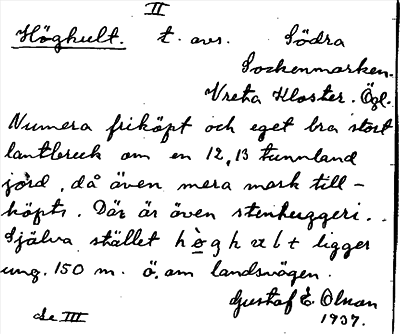 II
Höghult. t. avs. Södra
Sockenmarken.
Vreta Kloster. Ögl.
Numera friköpt och eget bra stort
lantbruk om en 12, 13 tunnland
jord, då även mera mark till-
köpts. Där är även stenhuggeri..
Själva stället höghult ligger
ung. 150 m. ö. om landsvägen.
Gustaf E. Olsson
1937.
de III